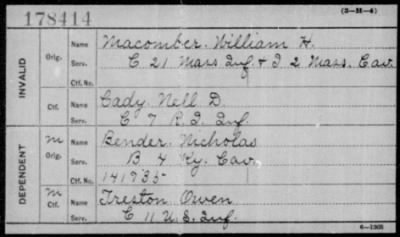 178414
(3-H-4)
INVALID
Orig.
Name Macomber. William H.
Serv. C 21 Mass Inf. & I 2 Mass. Cav.
Ctf. No.
Ctf.
Name Cady Nell D.
Serv. C 7 R.I. Inf.
DEPENDENT
M Orig.
Name Bender Nicholas
Serv. B 4 Ky. Cav.
Ctf. No. 141935
M Ctf.
Name Treston Owen
Serv. C 11 U.S. Inf.